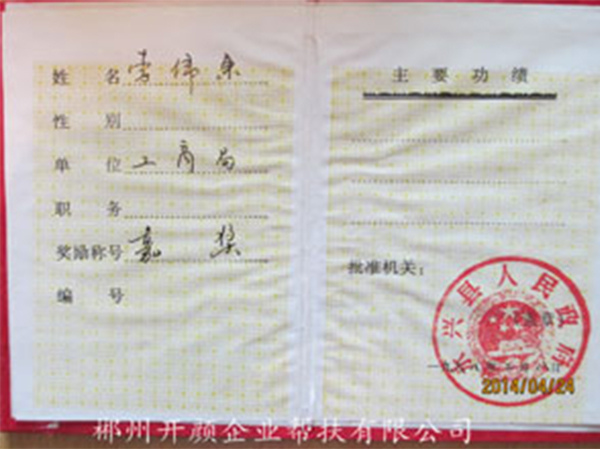 姓名 李伟东
性别
单位 工商局
职务
奖励称号 嘉奖
编号
主要功绩
批准机关：
永兴县人民政府
2014/04/24
郴州开颜企业帮扶有限公司